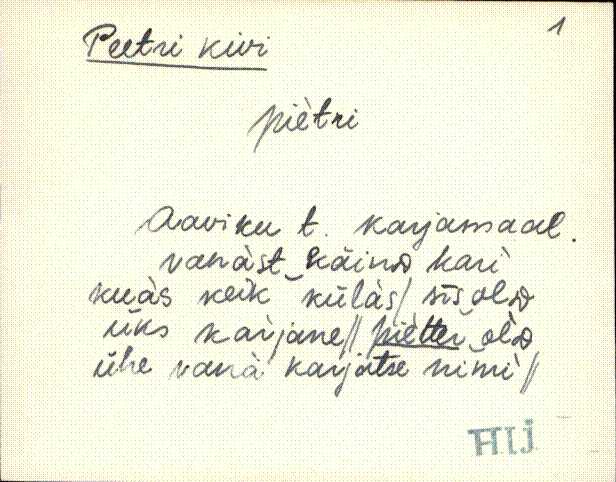 1
Peetri kivi
pìètri
Aaviku t. karjamaal.
vanàst‿käinᴅ kari
kuàs keik külàs/ sīs‿olᴅ
üks karjane// pìètter‿olᴅ
ühe vanà karjatse nimì//
HIj